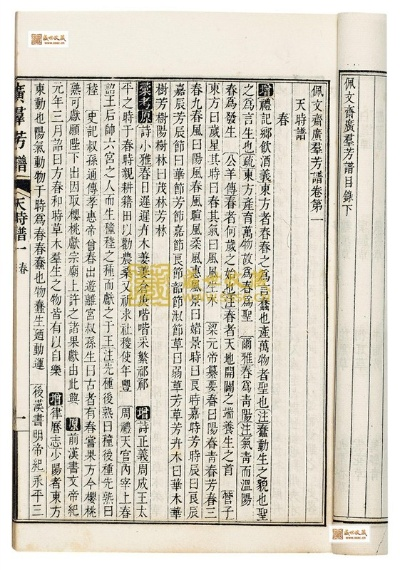 佩文齋廣羣芳譜目錄下
佩文齋廣羣芳譜卷第一
天時譜
春
增禮記鄉飲酒義東方者春春之爲言蠢也產萬物者聖也注蠢動生之貌也聖
之爲言生也疏東方產育萬物故爲春爲聖 爾雅春爲青陽注氣青而溫陽
春爲發生 公羊傳春者何歲之始也注春者天地開闢之端養生之首 管子
東方曰歲星其時曰春其氣曰風風生木 梁元帝纂要春曰陽春青春芳春三
春九春風曰陽風春風暄風柔風惠風景曰媚景時曰良時嘉時芳時辰曰良辰
嘉辰芳辰節曰華節芳節良節嘉節韶節淑節草曰弱草芳草芳卉木曰華木華
樹芳樹陽樹林曰茂林芳林
彙考原詩小雅春日遲遲卉木萋萋倉庚喈喈采蘩祁祁 增詩正義周成王太
平之時于春時親耕籍田以勸農業又祈求社稷使年豐 周禮天官內宰上春
詔王后帥六宮之人而生穜稑之種而獻之于王注先種後熟曰穜後種先熟曰
稑 史記叔孫通傳孝惠帝曾春出遊離宮叔孫生曰古者有春嘗果方今櫻桃
熟可獻願陛下出因取櫻桃獻宗廟上許之諸果獻由此興 原前漢書文帝紀
元年三月詔曰方春和時草木羣生之物皆有以自樂 增律歷志少陽者東方
東動也陽氣動物于時爲春春蠢也物蠢生迺動運 後漢書明帝紀永平三
廣羣芳譜 天時譜一 春 一